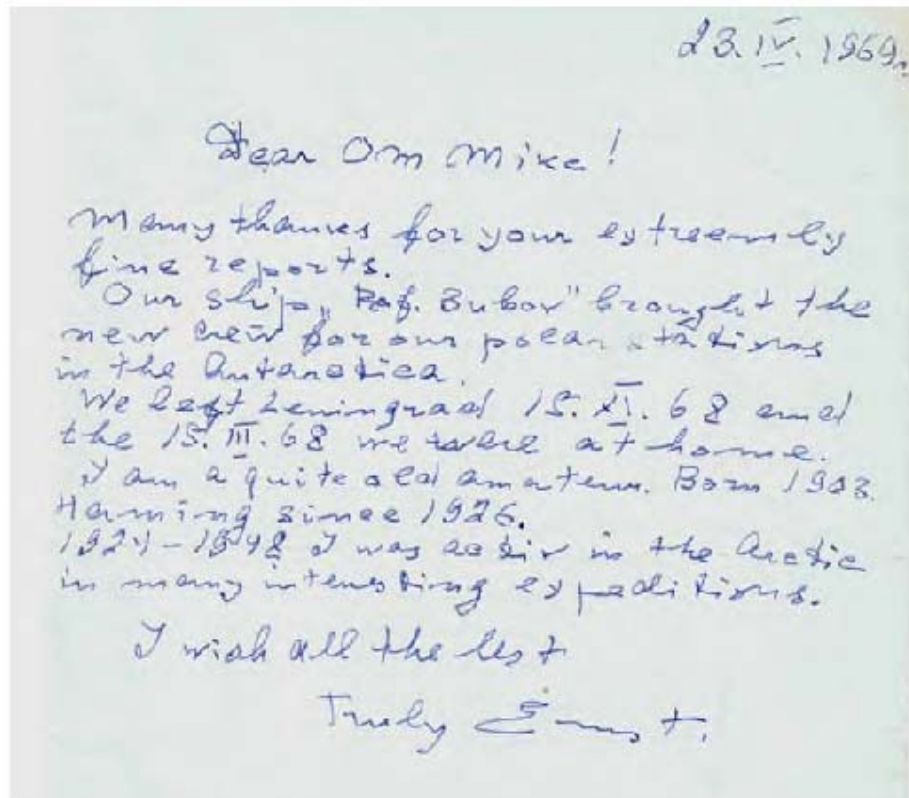 23.IV.1969г.
Dear Om Mike!
Many thanks for your extreemely
fine reports.
Our ship „Prof. Zubov" brought the
new crew for our polar stations
in the Antarctica.
We left Leningrad 15.XI.68 and
the 15.III.68 we were at home.
I am a quite old amateur. Born 1903.
Haming since 1926.
1927-1948 I was activ in the Arctic
in many interesting expeditions.
I wish all the best
Truly Ernst.